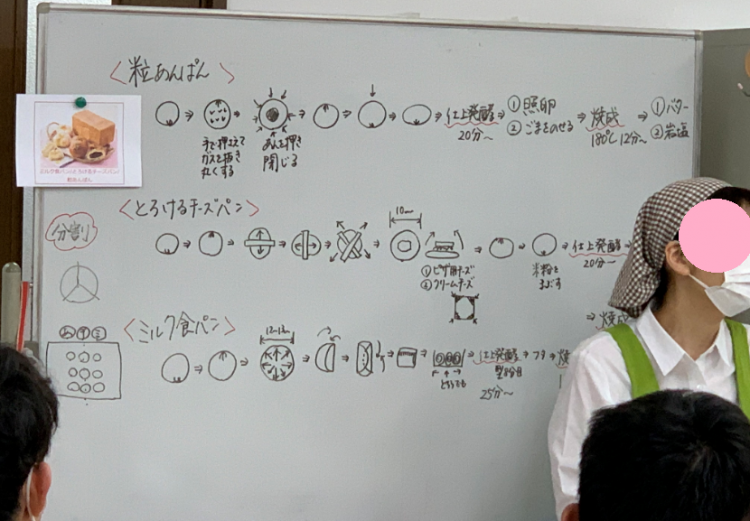 〈粒あんぱん〉
手で押えて
ガスを抜き
丸くする
あんを押き
閉じる
仕上発酵
20分〜
① 照卵
② ごまをのせる
焼成
180℃ 12分〜
① バター
② 岩塩
〈とろけるチーズパン〉
分割
10cm
① ピザ用チーズ
② クリームチーズ
米粉を
まぶす
仕上発酵
20分〜
焼成
〈ミルク食パン〉
仕上発酵
型8分目
25分〜
フタ
焼